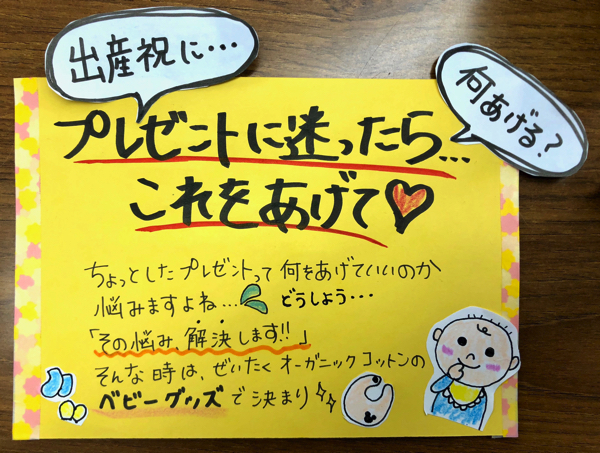 出産祝に・・・
何あげる?
プレゼントに迷ったら…
これをあげて♡
ちょっとしたプレゼントって何をあげていいのか
悩みますよね… どうしよう・・・
「その悩み、解決します!!」
そんな時は、ぜいたくオーガニックコットンの
ベビーグッズで決まり